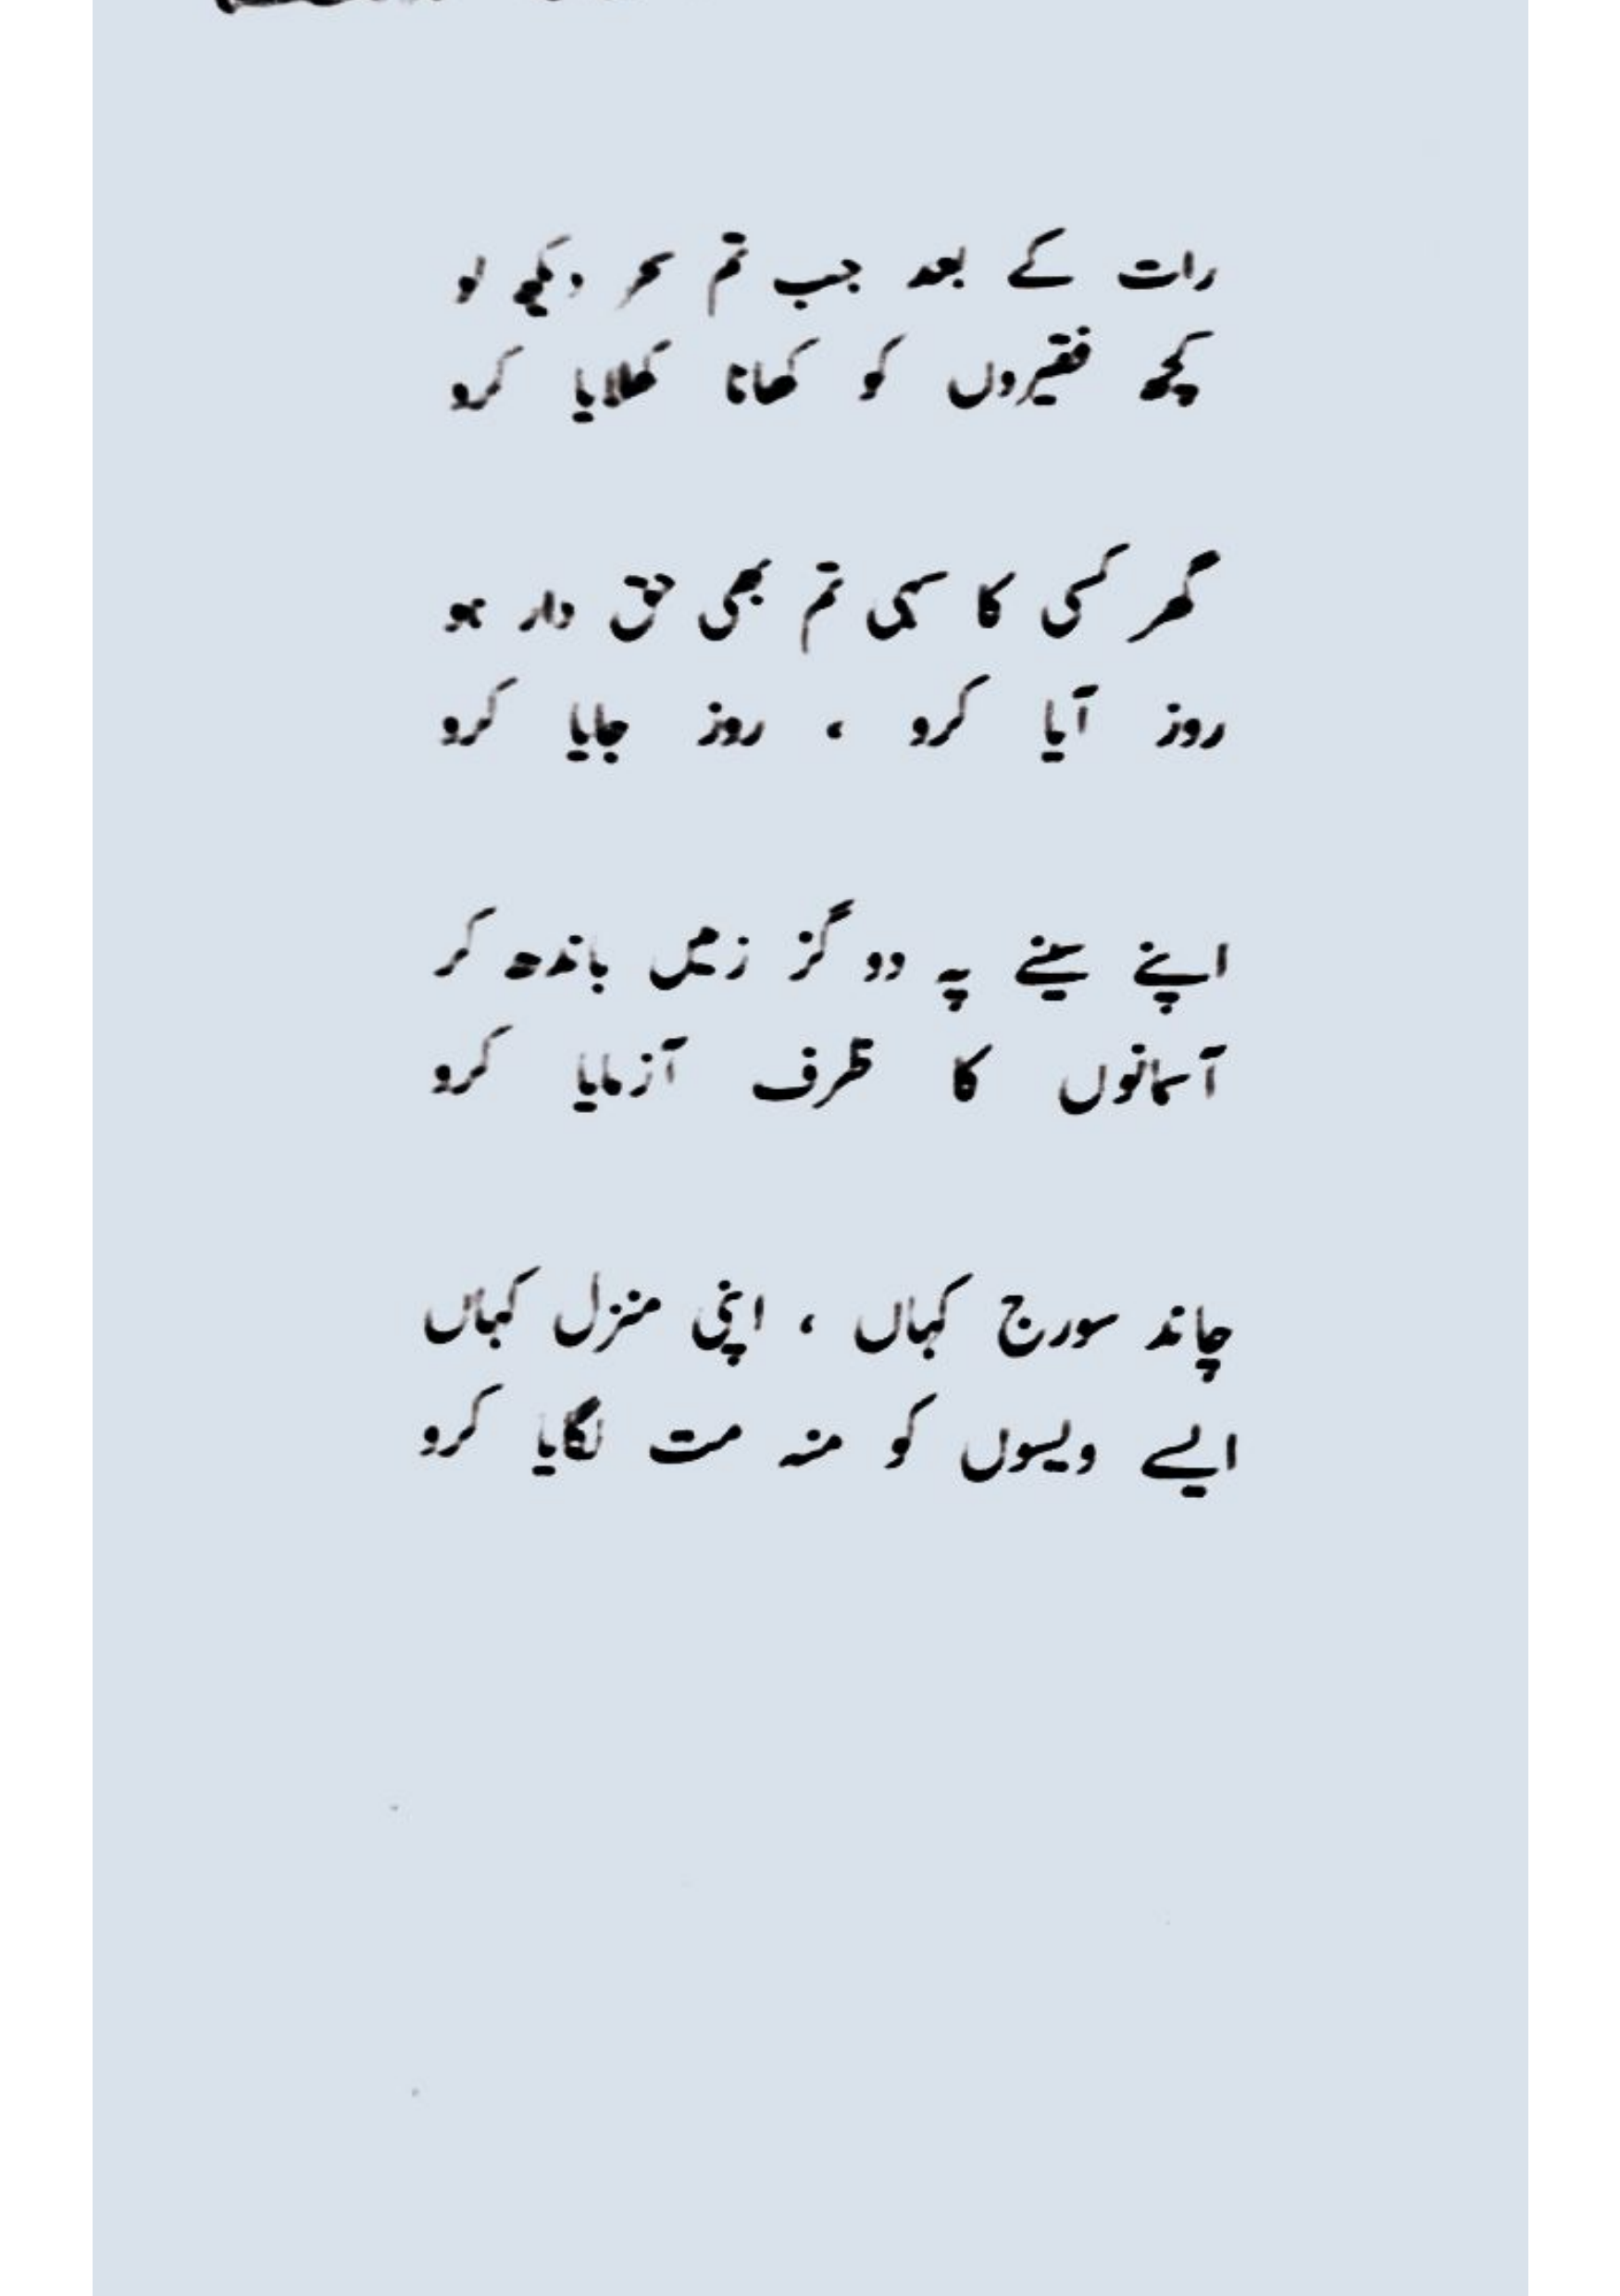 رات کے بعد جب تم سحر دیکھ لو
کچھ فقیروں کو کھانا کھلایا کرو
گھر کسی کا سہی تم بھی حق دار ہو
روز آیا کرو ، روز جایا کرو
اپنے سینے پہ دو گز زمیں باندھ کر
آسمانوں کا ظرف آزمایا کرو
چاند سورج کہاں ، اپنی منزل کہاں
ایسے ویسوں کو منہ مت لگایا کرو